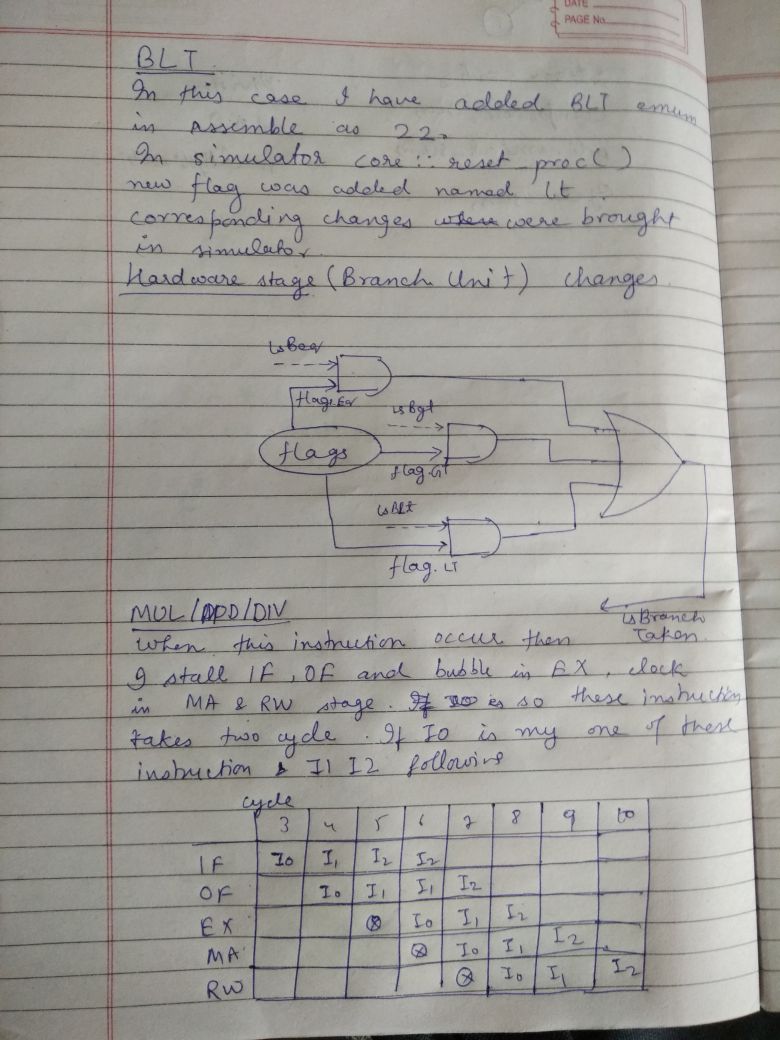 DATE
PAGE No.
BLT
In this case I have added BLT enum
in Assemble as 22.
In simulator core :: reset_proc()
new flag was added named lt.
corresponding changes were brought
in simulator.
Hardware stage (Branch Unit) changes.
isBeq
flag.Eq
isBgt
flags
flag.GT
isBlt
flag. LT
isBranch
Taken.
MUL/MOD/DIV
When this instruction occur then
I stall IF, OF and bubble in EX, clock
in MA & RW stage. so these instruction
takes two cycle. If I0 is my one of these
instruction & I1 I2 following
cycle
3 4 5 6 7 8 9 10
IF I0 I1 I2 I2
OF I0 I1 I1 I2
EX ⊗ I0 I1 I2
MA ⊗ I0 I1 I2
RW ⊗ I0 I1 I2